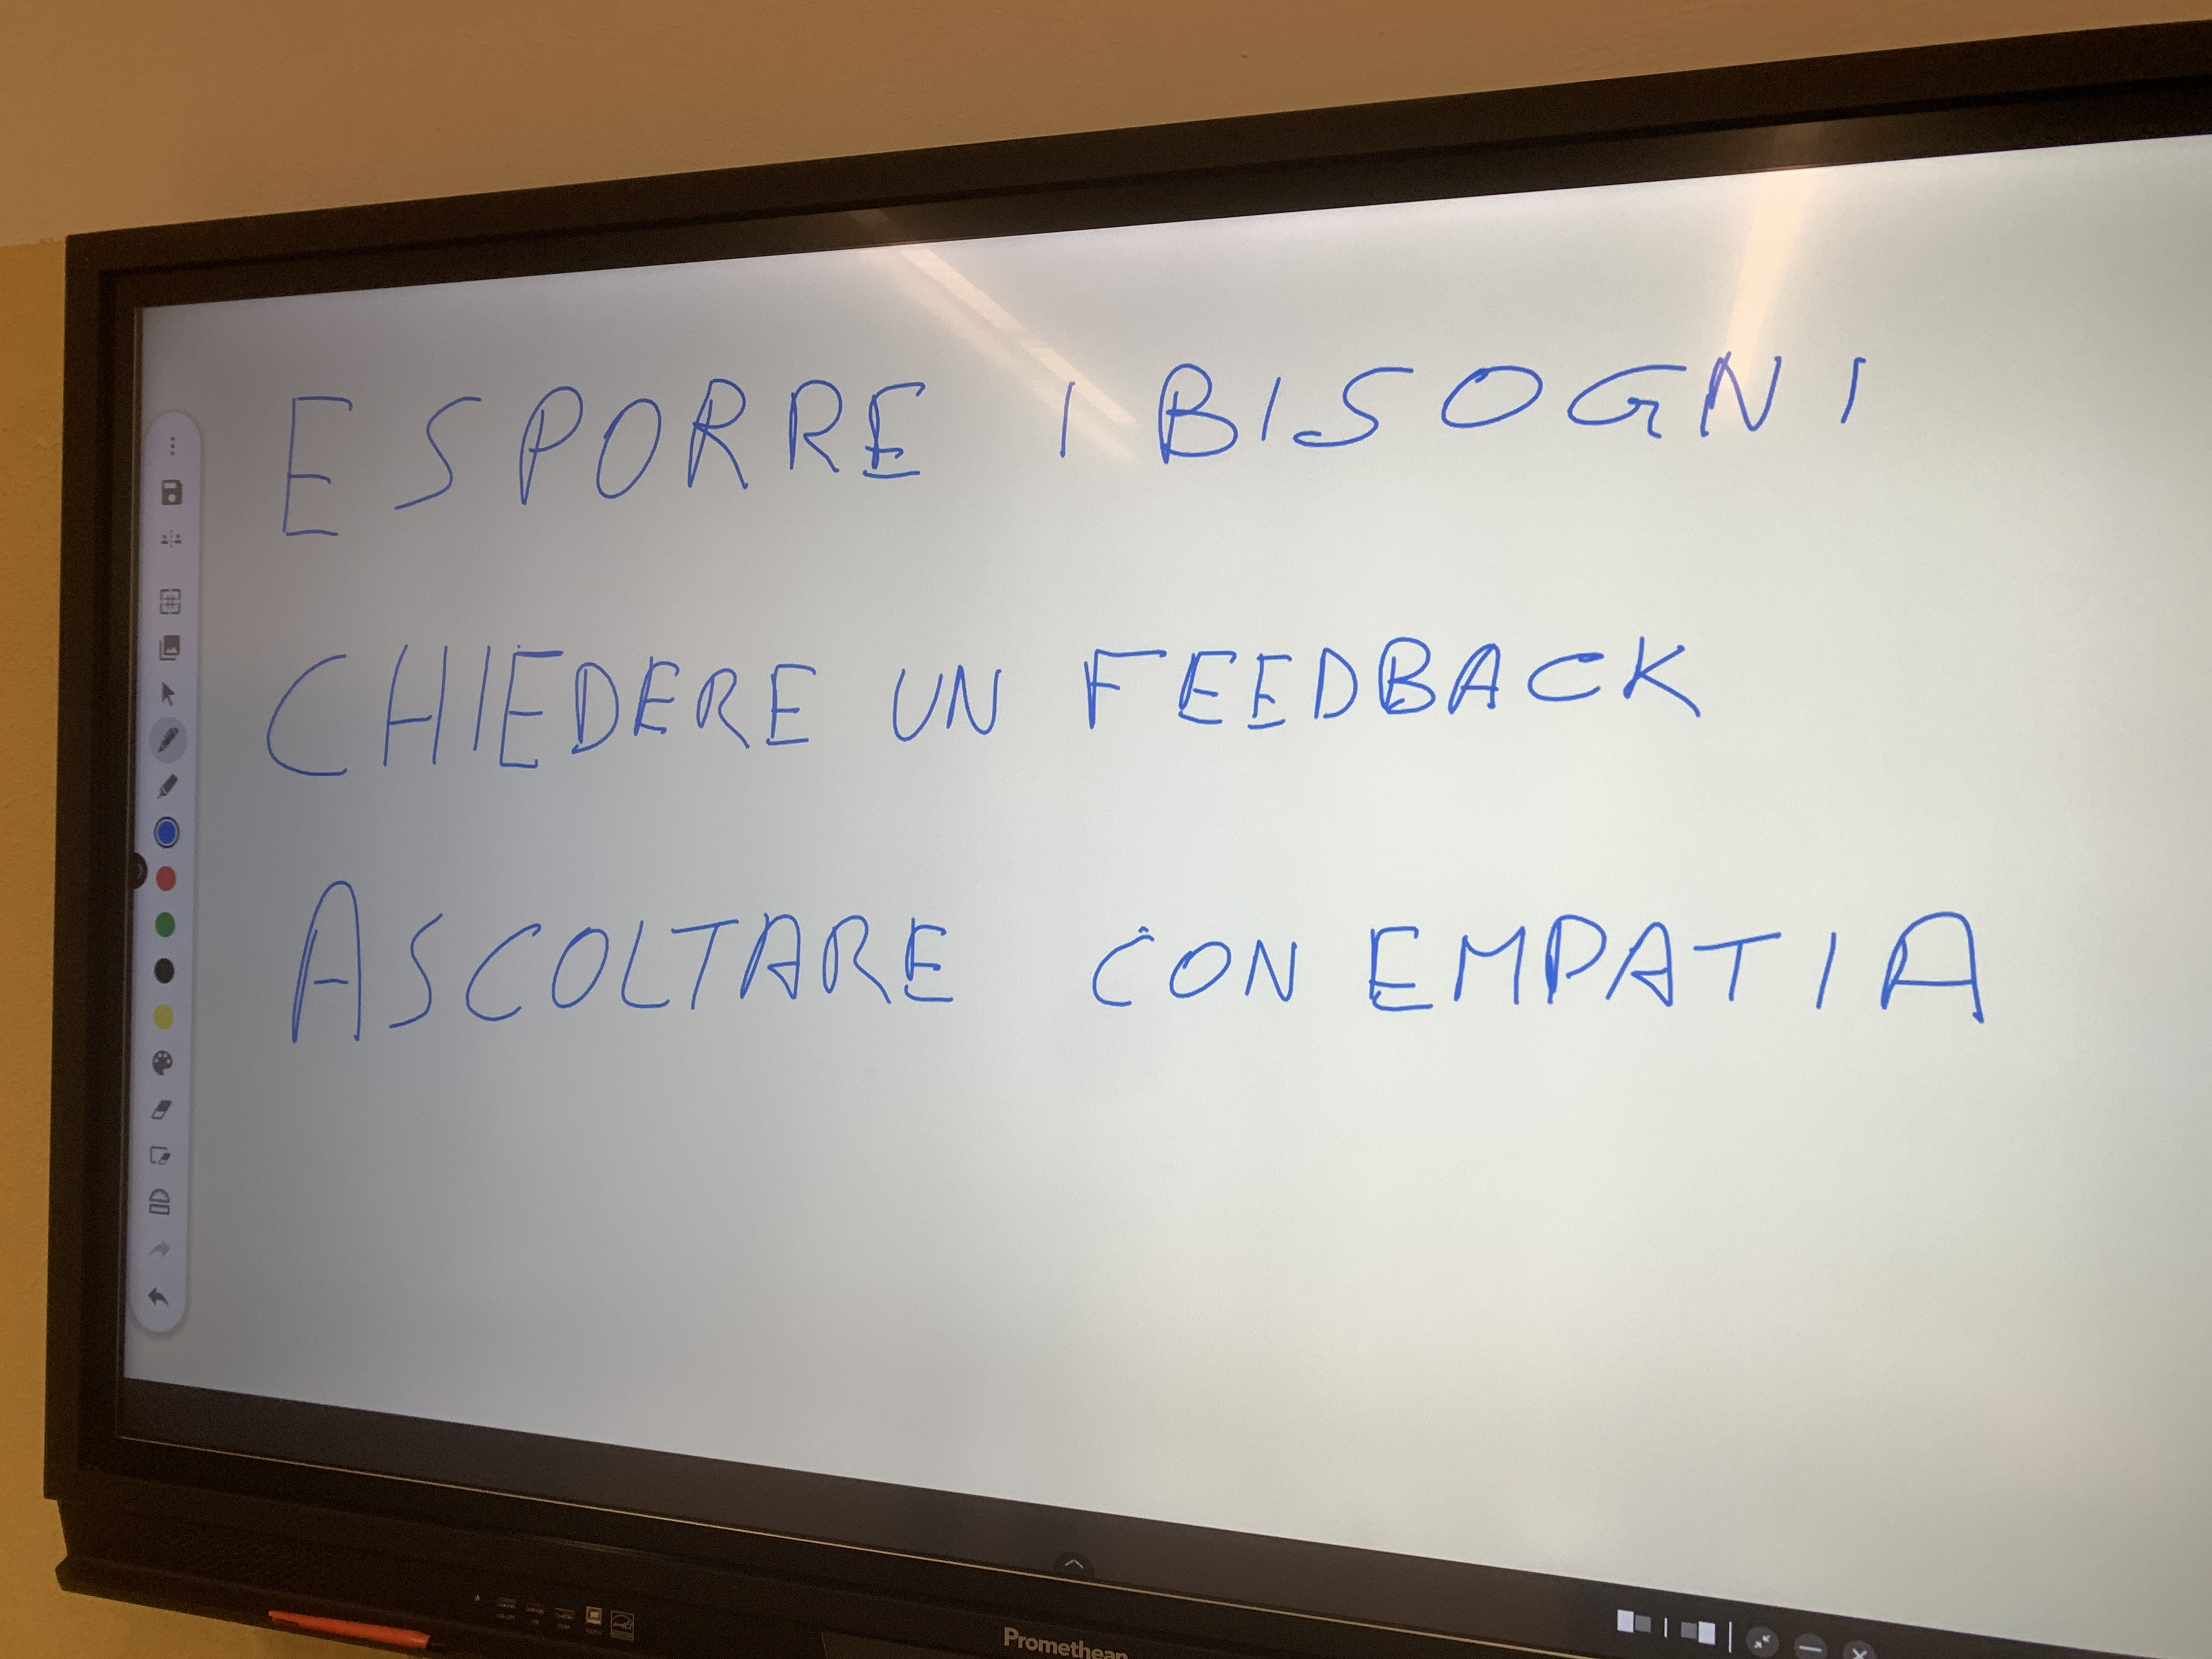 ESPORRE I BISOGNI
CHIEDERE UN FEEDBACK
ASCOLTARE CON EMPATIA
Promethean